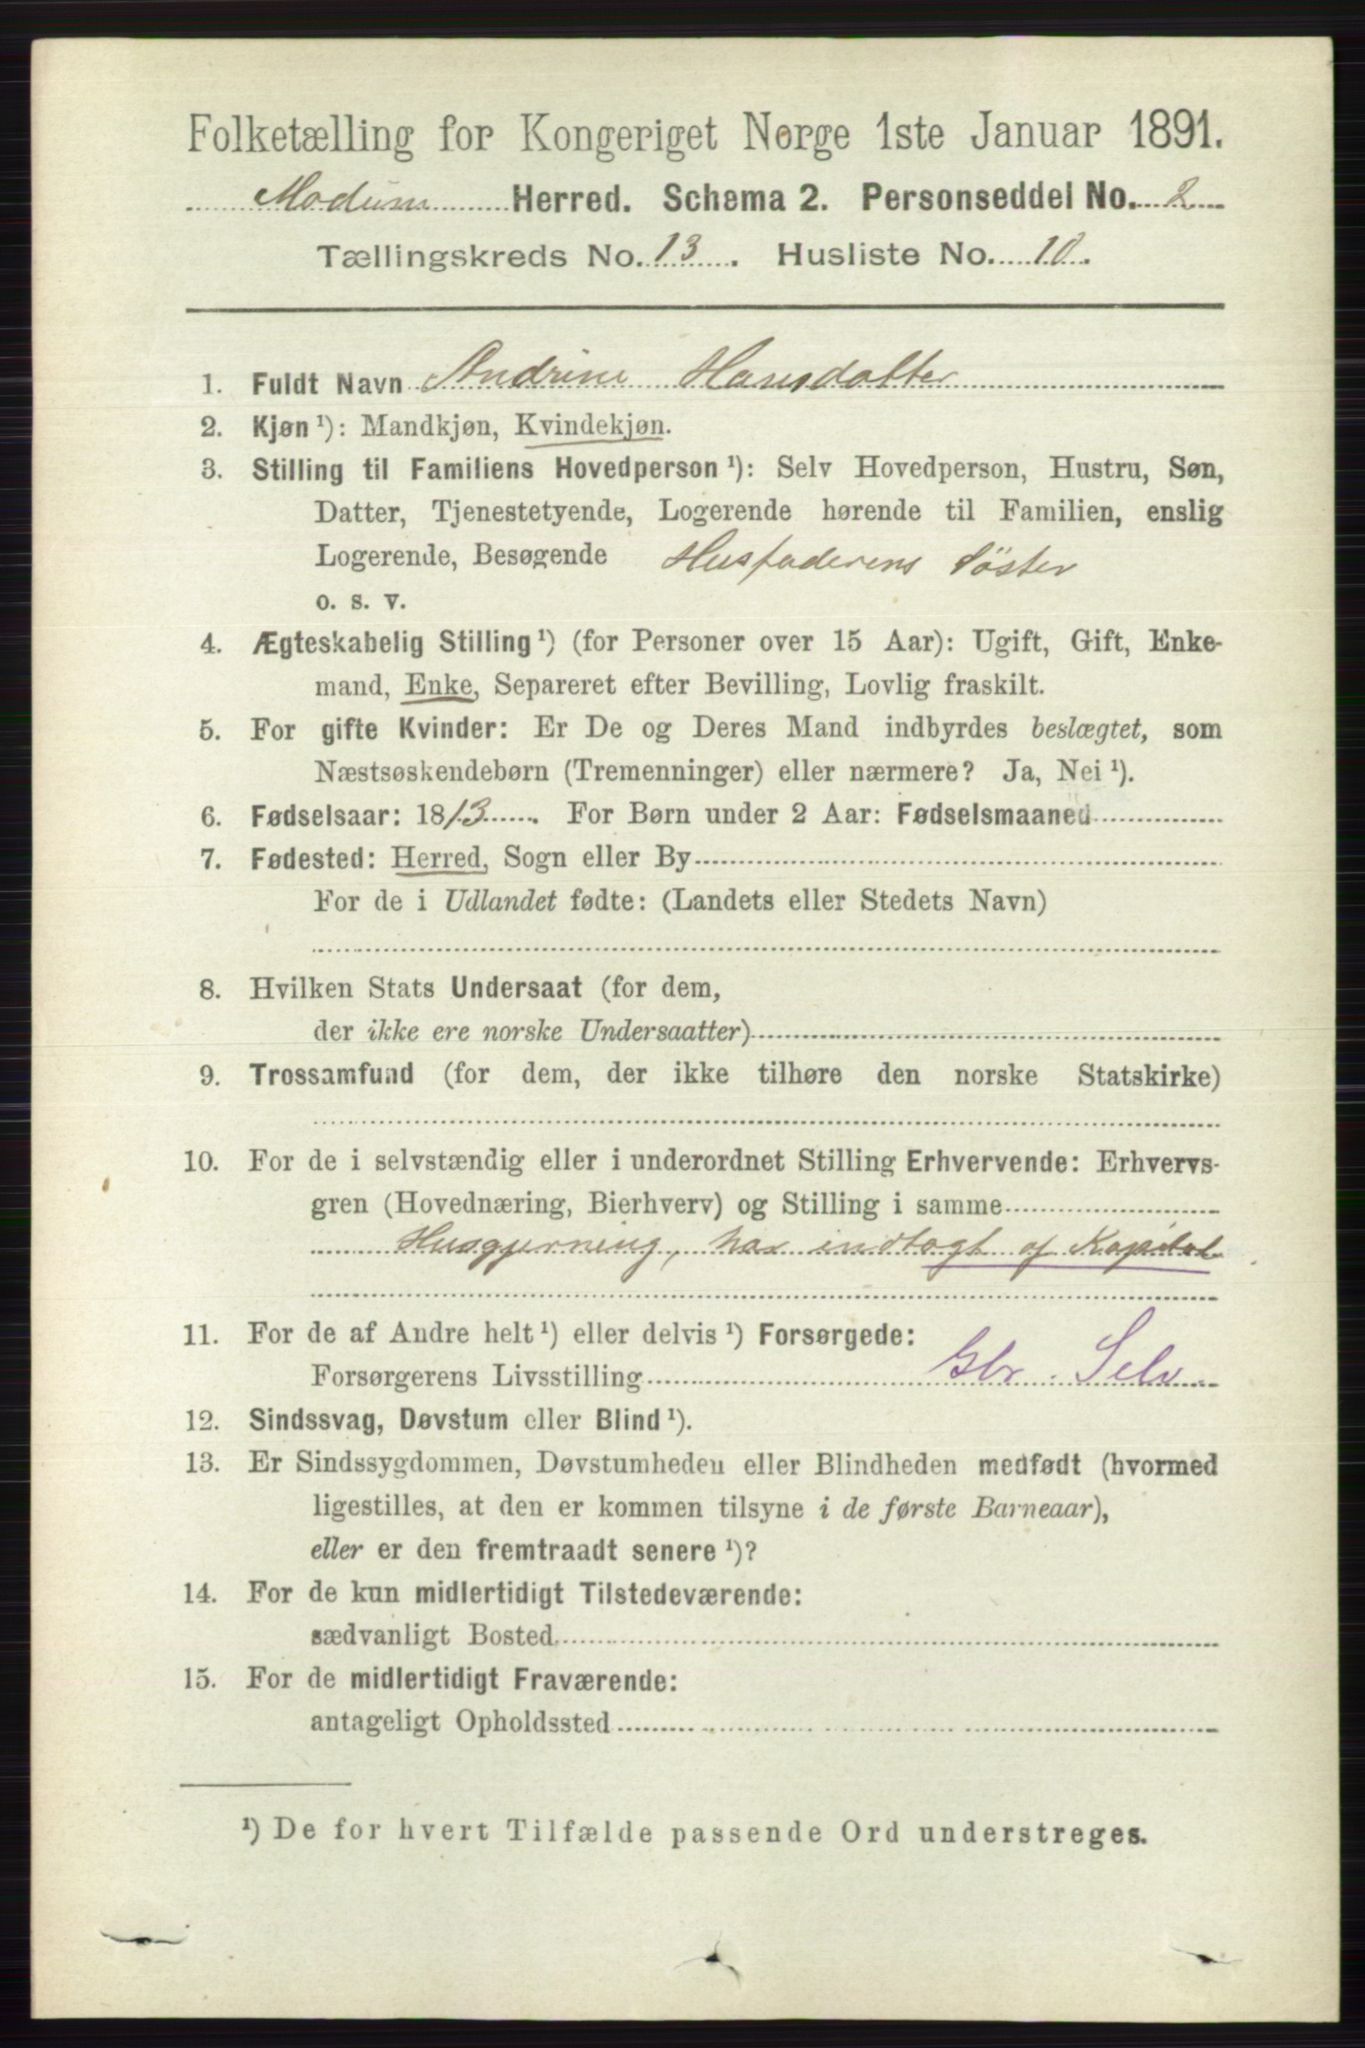 Folketælling for Kongeriget Norge 1ste Januar 1891.
Modum Herred. Schema 2. Personseddel No. 2
Tællingskreds No. 13. Husliste No. 10.
1. Fuldt Navn Andrine Hansdatter
2. Kjøn ¹): Mandkjøn, Kvindekjøn.
3. Stilling til Familiens Hovedperson ¹): Selv Hovedperson, Hustru, Søn,
Datter, Tjenestetyende, Logerende hørende til Familien, enslig
Logerende, Besøgende Husfaderens Söster
o. s. v.
4. Ægteskabelig Stilling ¹) (for Personer over 15 Aar): Ugift, Gift, Enke-
mand, Enke, Separeret efter Bevilling, Lovlig fraskilt.
5. For gifte Kvinder: Er De og Deres Mand indbyrdes beslægtet, som
Næstsøskendebørn (Tremenninger) eller nærmere? Ja, Nei ¹).
6. Fødselsaar: 1813. For Børn under 2 Aar: Fødselsmaaned
7. Fødested: Herred, Sogn eller By
For de i Udlandet fødte: (Landets eller Stedets Navn)
8. Hvilken Stats Undersaat (for dem,
der ikke ere norske Undersaatter)
9. Trossamfund (for dem, der ikke tilhøre den norske Statskirke)
10. For de i selvstændig eller i underordnet Stilling Erhvervende: Erhvervs-
gren (Hovednæring, Bierhverv) og Stilling i samme
Husgjerning, har indtægt af Kapital
11. For de af Andre helt ¹) eller delvis ¹) Forsørgede:
Forsørgerens Livsstilling Gbr. Selv.
12. Sindssvag, Døvstum eller Blind ¹).
13. Er Sindssygdommen, Døvstumheden eller Blindheden medfødt (hvormed
ligestilles, at den er kommen tilsyne i de første Barneaar),
eller er den fremtraadt senere ¹)?
14. For de kun midlertidigt Tilstedeværende:
sædvanligt Bosted
15. For de midlertidigt Fraværende:
antageligt Opholdssted
¹) De for hvert Tilfælde passende Ord understreges.